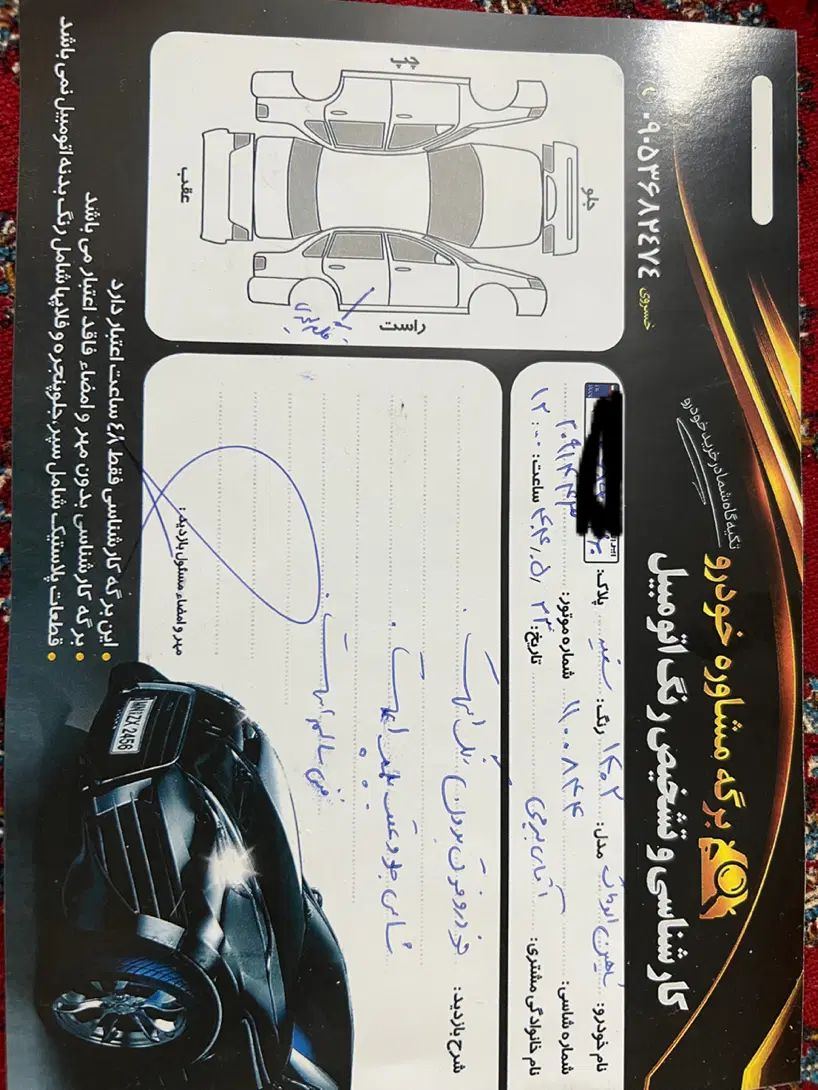 کارشناسی و تشخیص رنگ اتومبیل
برگه مشاوره خودرو
تکیه گاه شما در خرید خودرو
۰۹۰۵۳۶۸۲۴۷۴ خسروی
نام خودرو: شاهین اتومات مدل: ۱۴۰۲ رنگ: سفید پلاک:
شماره شاسی: ۱۱۰۰۸۴۴ شماره موتور:
نام خانوادگی مشتری: آقای تاریخ: ساعت: ۱۲:۰۰
جلو
چپ
راست
عقب
شرح بازدید:
خودرو فوق بدون رنگ است.
شاسی جلو و عقب پلمپ است.
فنی سالم است.
مهر و امضاء مسئول بازدید:
این برگه کارشناسی فقط ۴۸ ساعت اعتبار دارد
برگه کارشناسی بدون مهر و امضاء فاقد اعتبار می باشد
قطعات پلاستیک شامل سپر، جلوپنجره و فلاپها شامل رنگ بدنه اتومبیل نمی باشد